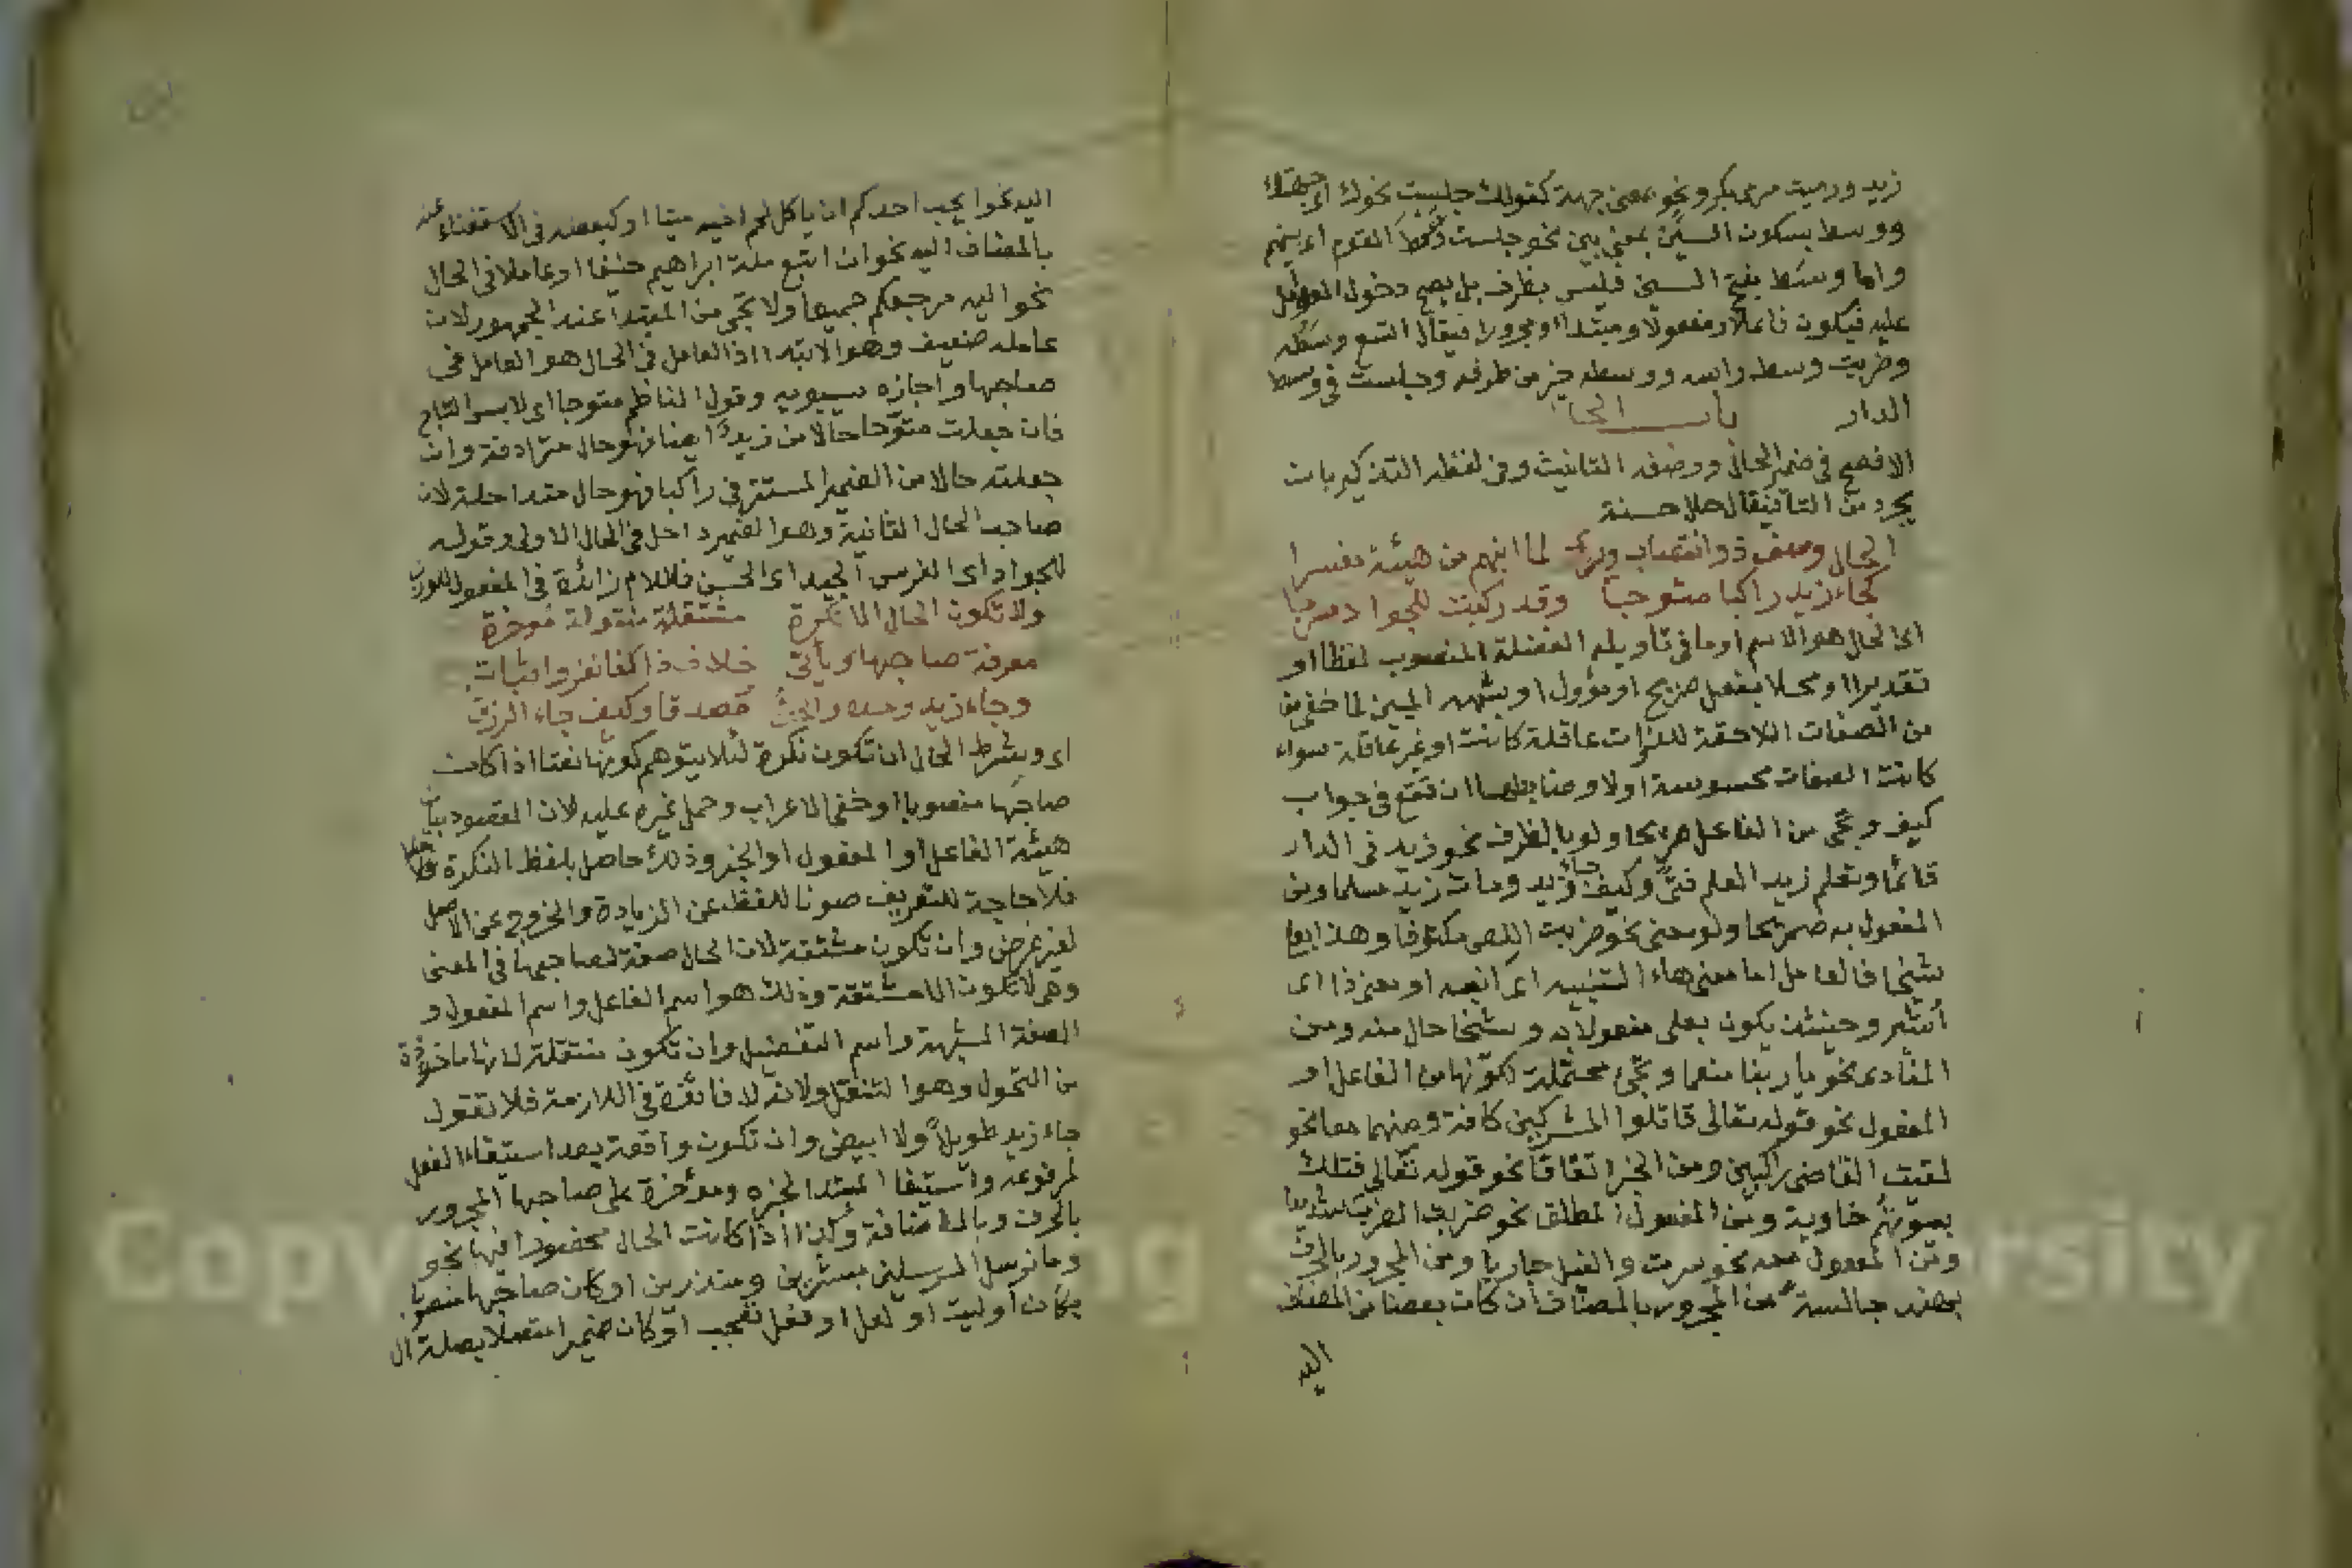 زيد ورميت مرمى بكر ونحو بمعنى جهة كقولك جلست نحوك اى جهتك
ووسط بسكون السين بمعنى بين نحو جلست وسط القوم اى بينهم
واما وسط بفتح السين فليس بظرف بل يصح دخول العوامل
عليه فيكون فاعلا ومفعولا ومبتداء ومجرورا فيقال اتسع وسطه
وضربت وسط راسه ووسطه خير من طرفه وجلست فى وسط
الدار باب الحال
الافصح فى ضمير الحال ووصفه التانيث وفى لفظه التذكير بان
يجرد من التا فيقال حال حسنة
الحال وصف ذو انتصاب لما انبهم من هيئة مفسرا
كجاء زيد راكبا متوجا وقد ركبت للجواد مسرجا
اى الحال هو الاسم او ما فى تاويله الفضلة المنصوب لفظا او
تقديرا او محلا بفعل صريح او مؤول او بشبهه المبين لما خفى
من الصفات اللاحقة للذوات عاقلة كانت او غير عاقلة سواء
كانت الصفات محسوسة اولا وضابطها ان تقع فى جواب
كيف وتجى من الفاعل صريحا ولو بالظرف نحو زيد فى الدار
قائما وتعلم زيد العلم فتى وكيف جاء زيد ومات زيد مسلما ومن
المفعول به صريحا ولو معنى نحو ضربت اللص مكتوفا وهذا بعلى
شيخا فالعامل اما معنى هاء التنبيه اى انبه او معنى ذا اى
أشير وحينئذ يكون بعلى مفعولا به وشيخا حال منه ومن
المنادى نحو يا ربنا منعما وتجئ محتملة لكونها من الفاعل او
المفعول نحو قوله تعالى قاتلوا المشركين كافة ومنهما معا نحو
لقيت القاضى راكبين ومن الخبر اتفاقا نحو قوله تعالى فتلك
بيوتهم خاوية ومن المفعول المطلق نحو ضربت الضرب شديدا
ومن المفعول معه نحو سرت والنيل جاريا ومن المجرور بالحرف
بهند جالسة ومن المجرور بالمضاف ان كان بعضا من المضاف
اليه
اليه نحو ايحب احدكم ان ياكل لحم اخيه ميتا او كبعضه فى الاستغناء عنه
بالمضاف اليه نحو ان اتبع ملة ابراهيم حنيفا او عاملا فى الحال
نحو اليه مرجعكم جميعا ولا تجى من المبتدا عند الجمهور لان
عامله ضعيف وهو الابتداء اذ العامل فى الحال هو العامل فى
صاحبها واجازه سيبويه وقول الناظم متوجا اى لابس التاج
فان جعلت متوجا حالا من زيد ايضا فهو حال مترادفة وان
جعلته حالا من الضمير المستتر فى راكبا فهو حال متداخلة لان
صاحب الحال الثانية وهو الضمير داخل فى الحال الاولى وقوله
للجواد اى الفرس الجيد اى الحسن فاللام زائدة فى المفعول للوزن
ولا تكون الحال الا نكرة مشتقة منقولة مؤخرة
معرفة صاحبها ويأتى خلاف ذا كفانفروا ثبات
وجاء زيد وحده والجث مصدقا وكيف جاء
اى ويشرط الحال ان تكون نكرة لئلا يتوهم كونها نعتا اذا كان
صاحبها منصوبا او خفى الاعراب وحمل غيره عليه لان المقصود بيان
هيئة الفاعل او المفعول او الخبر وذلك حاصل بلفظ النكرة
فلا حاجة للتعريف صونا للفظ عن الزيادة والخروج عن الاصل
لغير غرض وان تكون مشتقة لان الحال صفة لصاحبها فى المعنى
وهى لا تكون الا مشتقة وذلك هو اسم الفاعل واسم المفعول و
الصفة المشبهة واسم التفضيل وان تكون منتقلة لانها ماخوذة
من التحول وهو التنقل ولانه لا فائدة فى اللازمة فلا تقول
جاء زيد طويلا ولا ابيض وان تكون واقعة بعد استيفاء الفعل
لمرفوعه واستيفا المبتدا لخبره ومؤخرة على صاحبها المجرور
بالحرف وبالاضافة وكذا اذا كانت الحال محصورا فيها نحو
وما نرسل المرسلين الا مبشرين ومنذرين او كان صاحبها منصوبا
بكان او ليت او لعل او فعل تعجب او كان ضميرا متصلا بصلة ال